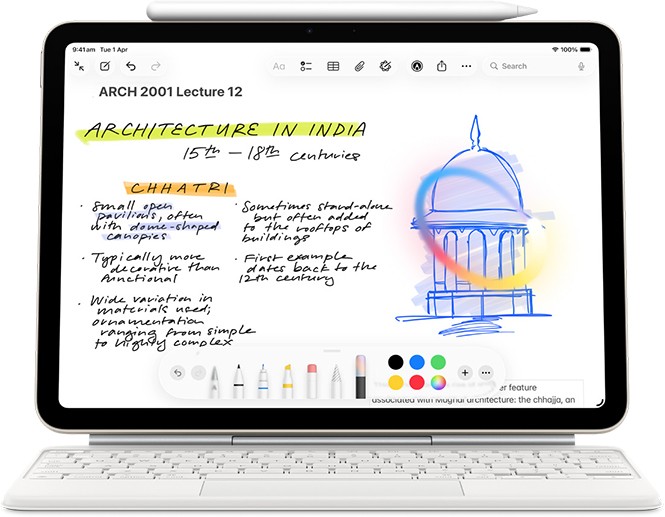 9:41am Tue 1 Apr
100%
Aa
Search
ARCH 2001 Lecture 12
ARCHITECTURE IN INDIA
15th – 18th centuries
CHHATRI
· Small open
pavilions, often
with dome-shaped
canopies
· Typically more
decorative than
functional
· Wide variation in
materials used;
ornamentation
ranging from simple
to highly complex
· Sometimes stand-alone
but often added
to the rooftops of
buildings
· First example
dates back to the
12th century
feature
associated with Mughal architecture: the chhajja, an